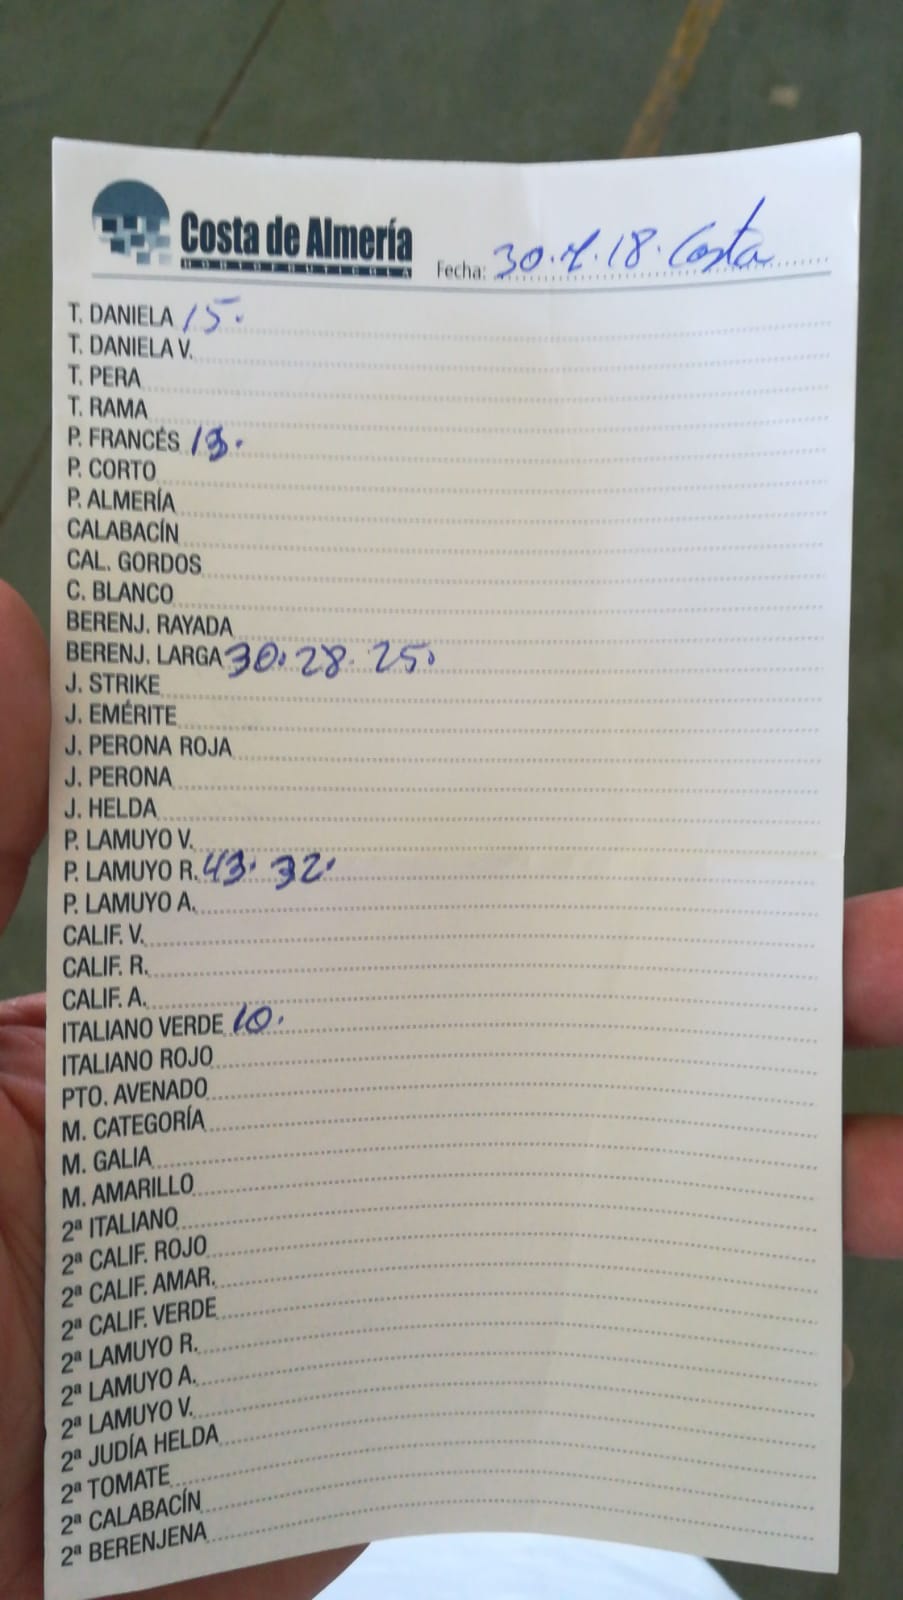 Costa de Almería
HORTOFRUTICOLA
Fecha: 30.7.18. Costa
T. DANIELA 15.
T. DANIELA V.
T. PERA
T. RAMA
P. FRANCÉS 13.
P. CORTO
P. ALMERÍA
CALABACÍN
CAL. GORDOS
C. BLANCO
BERENJ. RAYADA
BERENJ. LARGA 30. 28. 25.
J. STRIKE
J. EMÉRITE
J. PERONA ROJA
J. PERONA
J. HELDA
P. LAMUYO V.
P. LAMUYO R. 43. 32.
P. LAMUYO A.
CALIF. V.
CALIF. R.
CALIF. A.
ITALIANO VERDE 10.
ITALIANO ROJO
PTO. AVENADO
M. CATEGORÍA
M. GALIA
M. AMARILLO
2ª ITALIANO
2ª CALIF. ROJO
2ª CALIF. AMAR.
2ª CALIF. VERDE
2ª LAMUYO R.
2ª LAMUYO A.
2ª LAMUYO V.
2ª JUDÍA HELDA
2ª TOMATE
2ª CALABACÍN
2ª BERENJENA